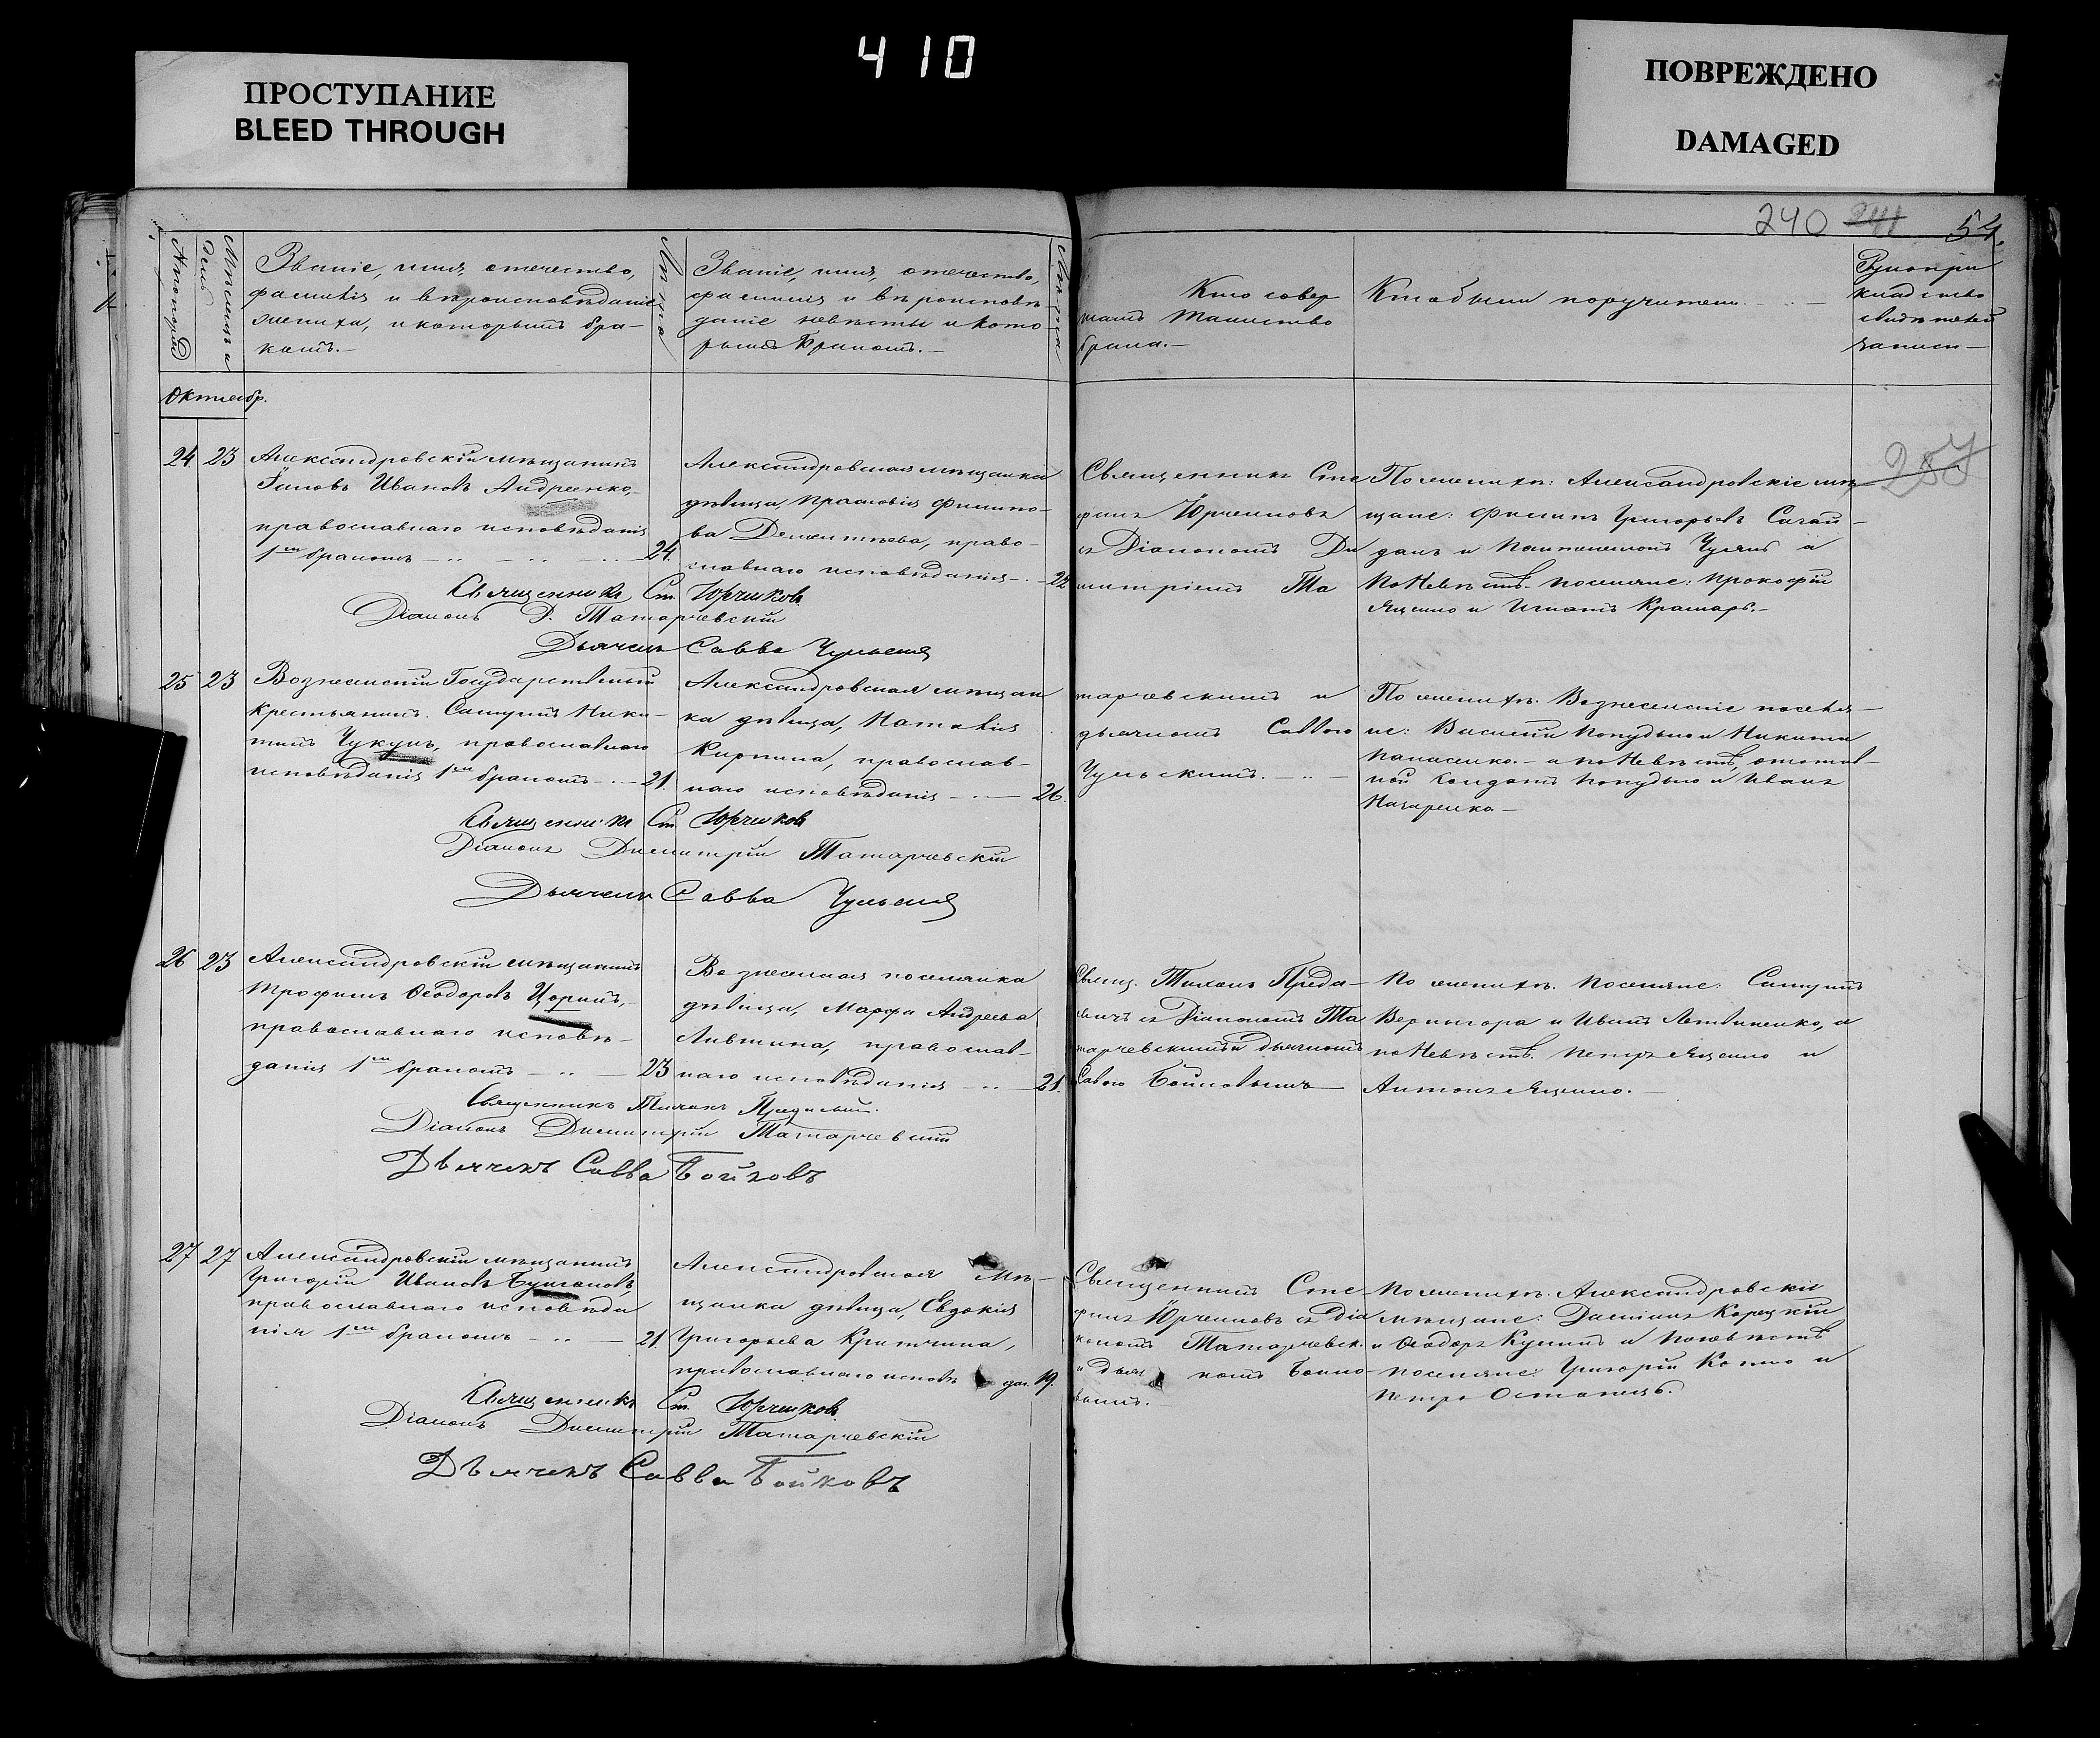 410
ПРОСТУПАНИЕ
BLEED THROUGH
ПОВРЕЖДЕНО
DAMAGED
240 241 54.
Мѣсяцъ и
день
Званіе, имя, отечество,
фамилія и вѣроисповѣданіе
жениха, и которымъ бра-
комъ.-
Лѣта
Званіе, имя, отечество,
фамилія и вѣроисповѣ
даніе невѣсты и кото
рымъ бракомъ.-
Лѣта
Кто совер
шалъ Таинство
брака.-
Кто были поручители
Рукопри
кладство
свидѣтелей
записи-
Октябр.
24. 23
Александровскій мѣщанинъ
Іаковъ Ивановъ Андреенко,
православнаго исповѣданія
1мъ бракомъ 24.
Александровская мѣщанка
дѣвица, Прасковія Филипо-
ва Дементьева, право-
славнаго исповѣданія 22
Священникъ Сте
фанъ Юрченковъ
съ Діакономъ Ди
митріемъ Та
По женихѣ: Александровскіе мѣ
щане: Филипъ Григорьевъ Сагай-
дакъ и Пантелемонъ а
По Невѣстѣ. поселяне: Прокофій
Яценко и Игнатъ Крамарь.-
257
Священникъ Ст. Юрченковъ
Діаконъ Д. Татарчевскій
Дьячекъ Савва Чульскій
25 23
Вознесенскій Государственный
крестьянинъ. Сампсонъ Ники-
тинъ Чукунъ, православнаго
исповѣданія 1мъ бракомъ 21.
Александровская мѣщан
ка дѣвица, Наталія
Кирпина, православ-
наго исповѣданія 26.
тарчевскимъ и
дьячкомъ Саввою
Чульскимъ.
По женихѣ. Вознесенскіе поселя-
не: Василій Попудько и Никита
Панасенко.- а по Невѣстѣ, отстав-
ной солдатъ Попудько и Иванъ
Назаренко-
Священникъ Ст. Юрченковъ
Діаконъ Димитрій Татарчевскій
Дьячекъ Савва Чульскій
26 23
Александровскій мѣщанинъ
Трофимъ Ѳеодоровъ Цоринъ,
православнаго исповѣ-
данія 1мъ бракомъ 23
Вознесенская поселянка
дѣвица, Марфа Андреева
Лившина, православ-
наго исповѣданія 21.
Свящ. Тихонъ Преда-
евичъ съ Діакономъ Та
тарчевскимъ и дьячкомъ
Саввою Бойковымъ
По женихѣ. поселяне: Сампсонъ
Вернигора и Иванъ Литвиненко, а
по Невѣстѣ. Петръ Яценко и
Антонъ Яценко.-
Священникъ Тихонъ
Діаконъ Димитрій Татарчевскій
Дьячекъ Савва Бойковъ
27 27
Александровскій мѣщанинъ
Григорій Ивановъ
православнаго исповѣда
нія 1мъ бракомъ 21.
Александровская Мѣ-
щанка дѣвица, Евдокія
Григорьева Критчина,
православнаго исповѣ дан. 19.
Священникъ Сте
фанъ Юрченковъ съ Діа
кономъ Татарчевск.
и дьяч комъ Бойко-
вымъ.
По женихѣ. Александровскіе
мѣщане: Даміанъ Корецкій
и Ѳеодоръ и По невѣстѣ
поселяне: Григорій Копко и
Петръ Остапецъ.
Священникъ Ст. Юрченковъ
Діаконъ Димитрій Татарчевскій
Дьячекъ Савва Бойковъ